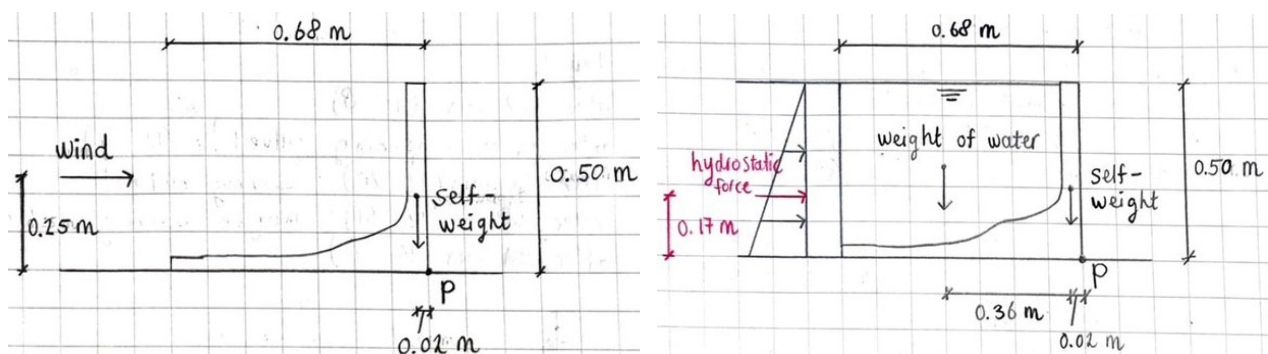 0.68 m
wind
0.25 m
self-
weight
0.50 m
P
0.02 m
0.68 m
weight of water
hydrostatic
force
0.17 m
self-
weight
0.50 m
P
0.36 m
0.02 m